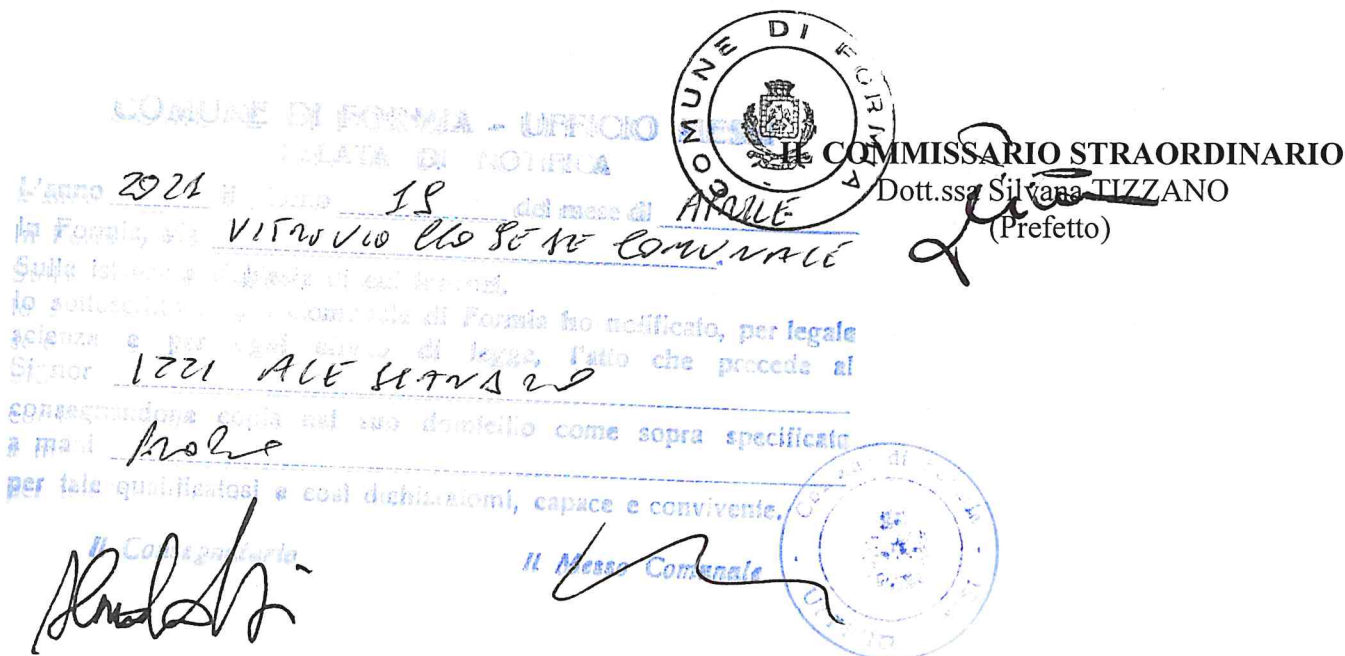 COMUNE DI FORMIA
IL COMMISSARIO STRAORDINARIO
Dott.ssa Silvana TIZZANO
(Prefetto)
COMUNE DI FORMIA - UFFICIO MESSI
RELATA DI NOTIFICA
L'anno 2021 il giorno 19 del mese di APRILE
In Formia, via VITRUVIO C/O SEDE COMUNALE
Sulla
Io di Formia ho notificato, per legale
scienza e per ogni di legge, l'atto che precede al
Signor IZZI ALESSANDRO
consegnandone copia nel suo domicilio come sopra specificato
a mani
per tale qualificatosi e così dichiaratomi, capace e convivente.
Il Consegnatario
Il Messo Comunale